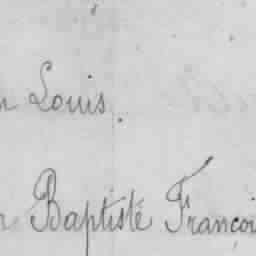 n Louis.
n Baptiste Françoi